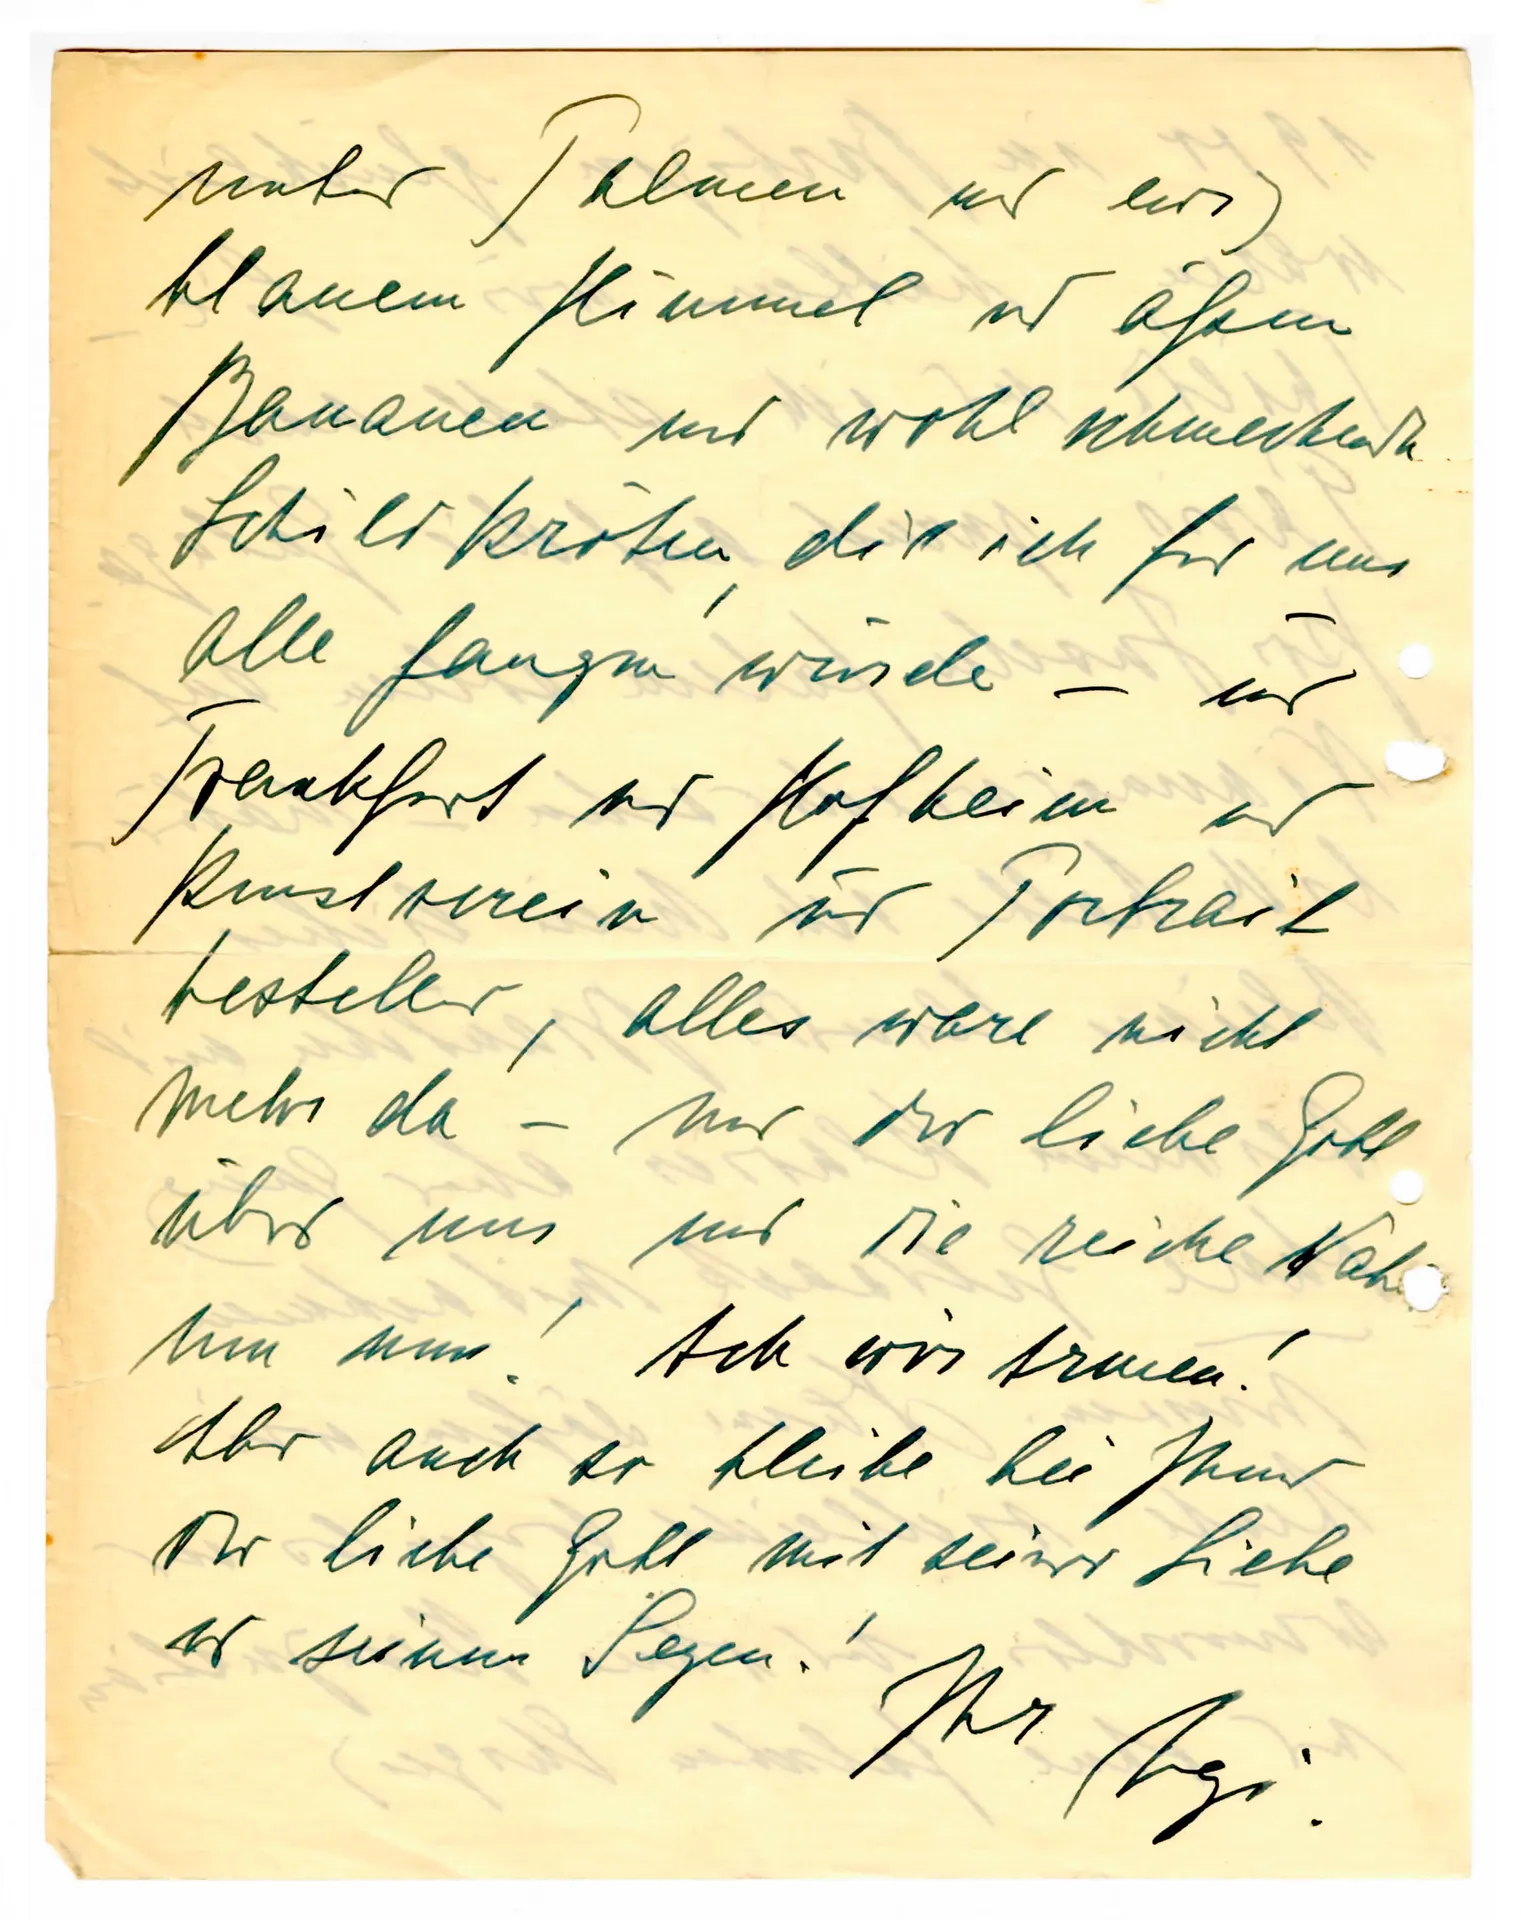 unter Palmen und ewig
blauem Himmel und äßen
Bananen und wohlschmeckende
Schildkröten, die ich für uns
alle fangen würde – und
Frankfurt und Hofheim und
Kunstverein und Portrait
besteller, alles wäre nicht
mehr da – nur der liebe Gott
über uns und die reiche
um uns! Ach wir Armen!
Aber auch so bleibe bei Ihnen
der liebe Gott mit seiner Liebe
und seinem Segen!
Ihr